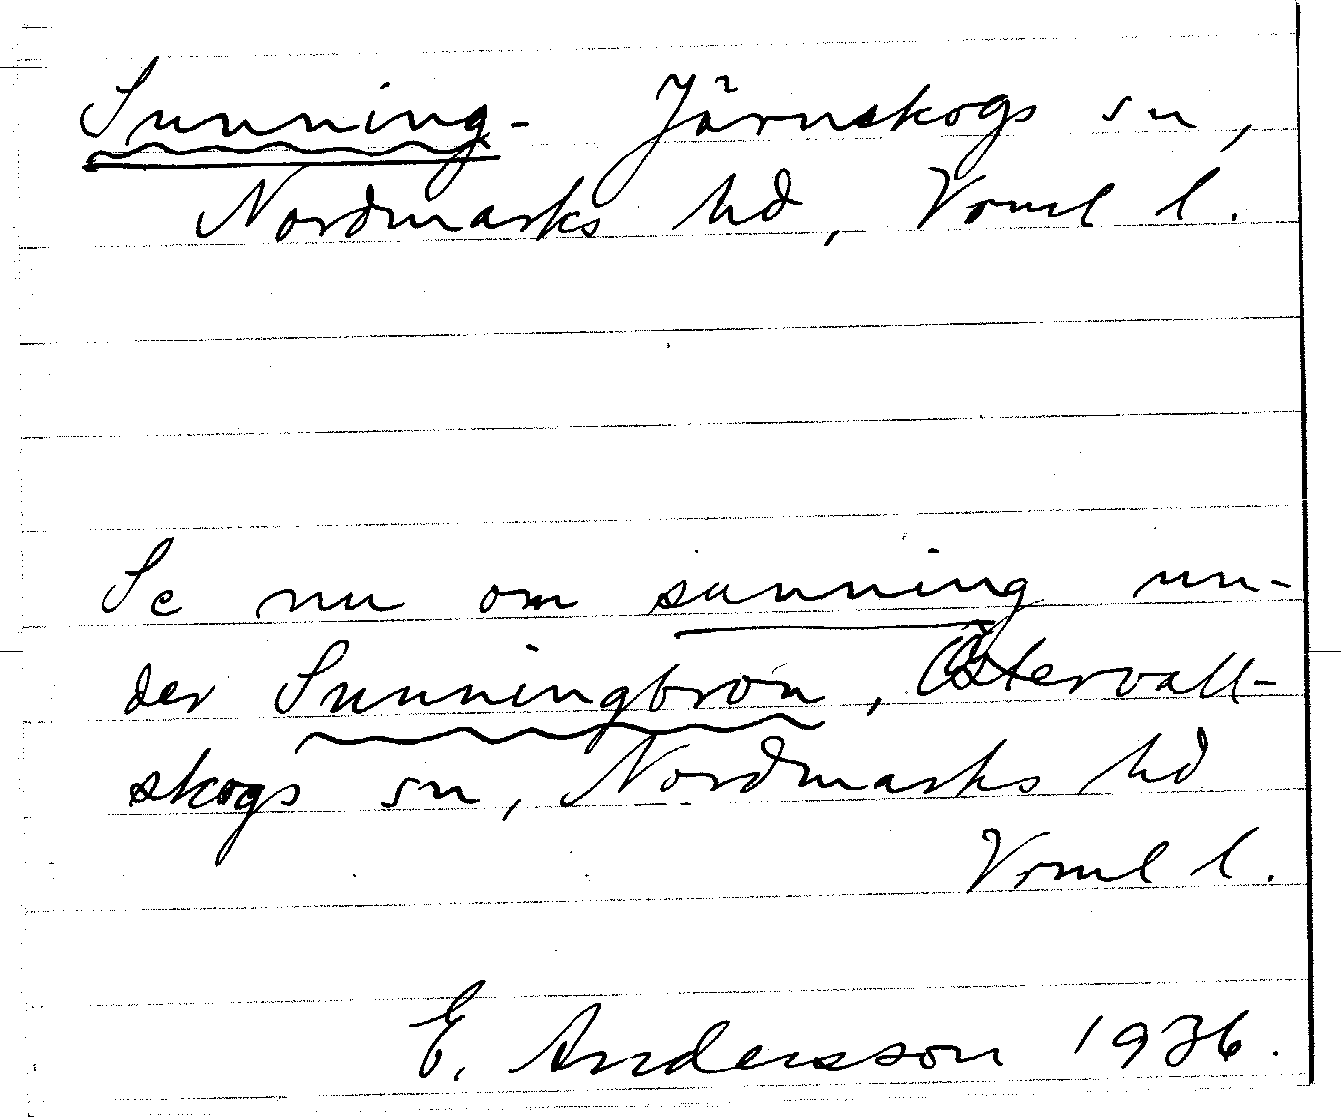 Sunning- Järnskogs sn,
Nordmarks hd, Vrml l.
Se nu om sunning un-
der Sunningbron, Östervall-
skogs sn, Nordmarks hd
Vrml l.
E. Andersson 1936.